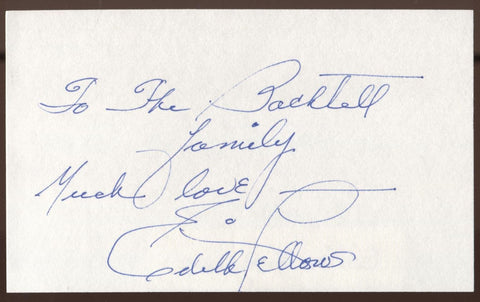 To The Bachtell
family
Much love –
Edith Fellows